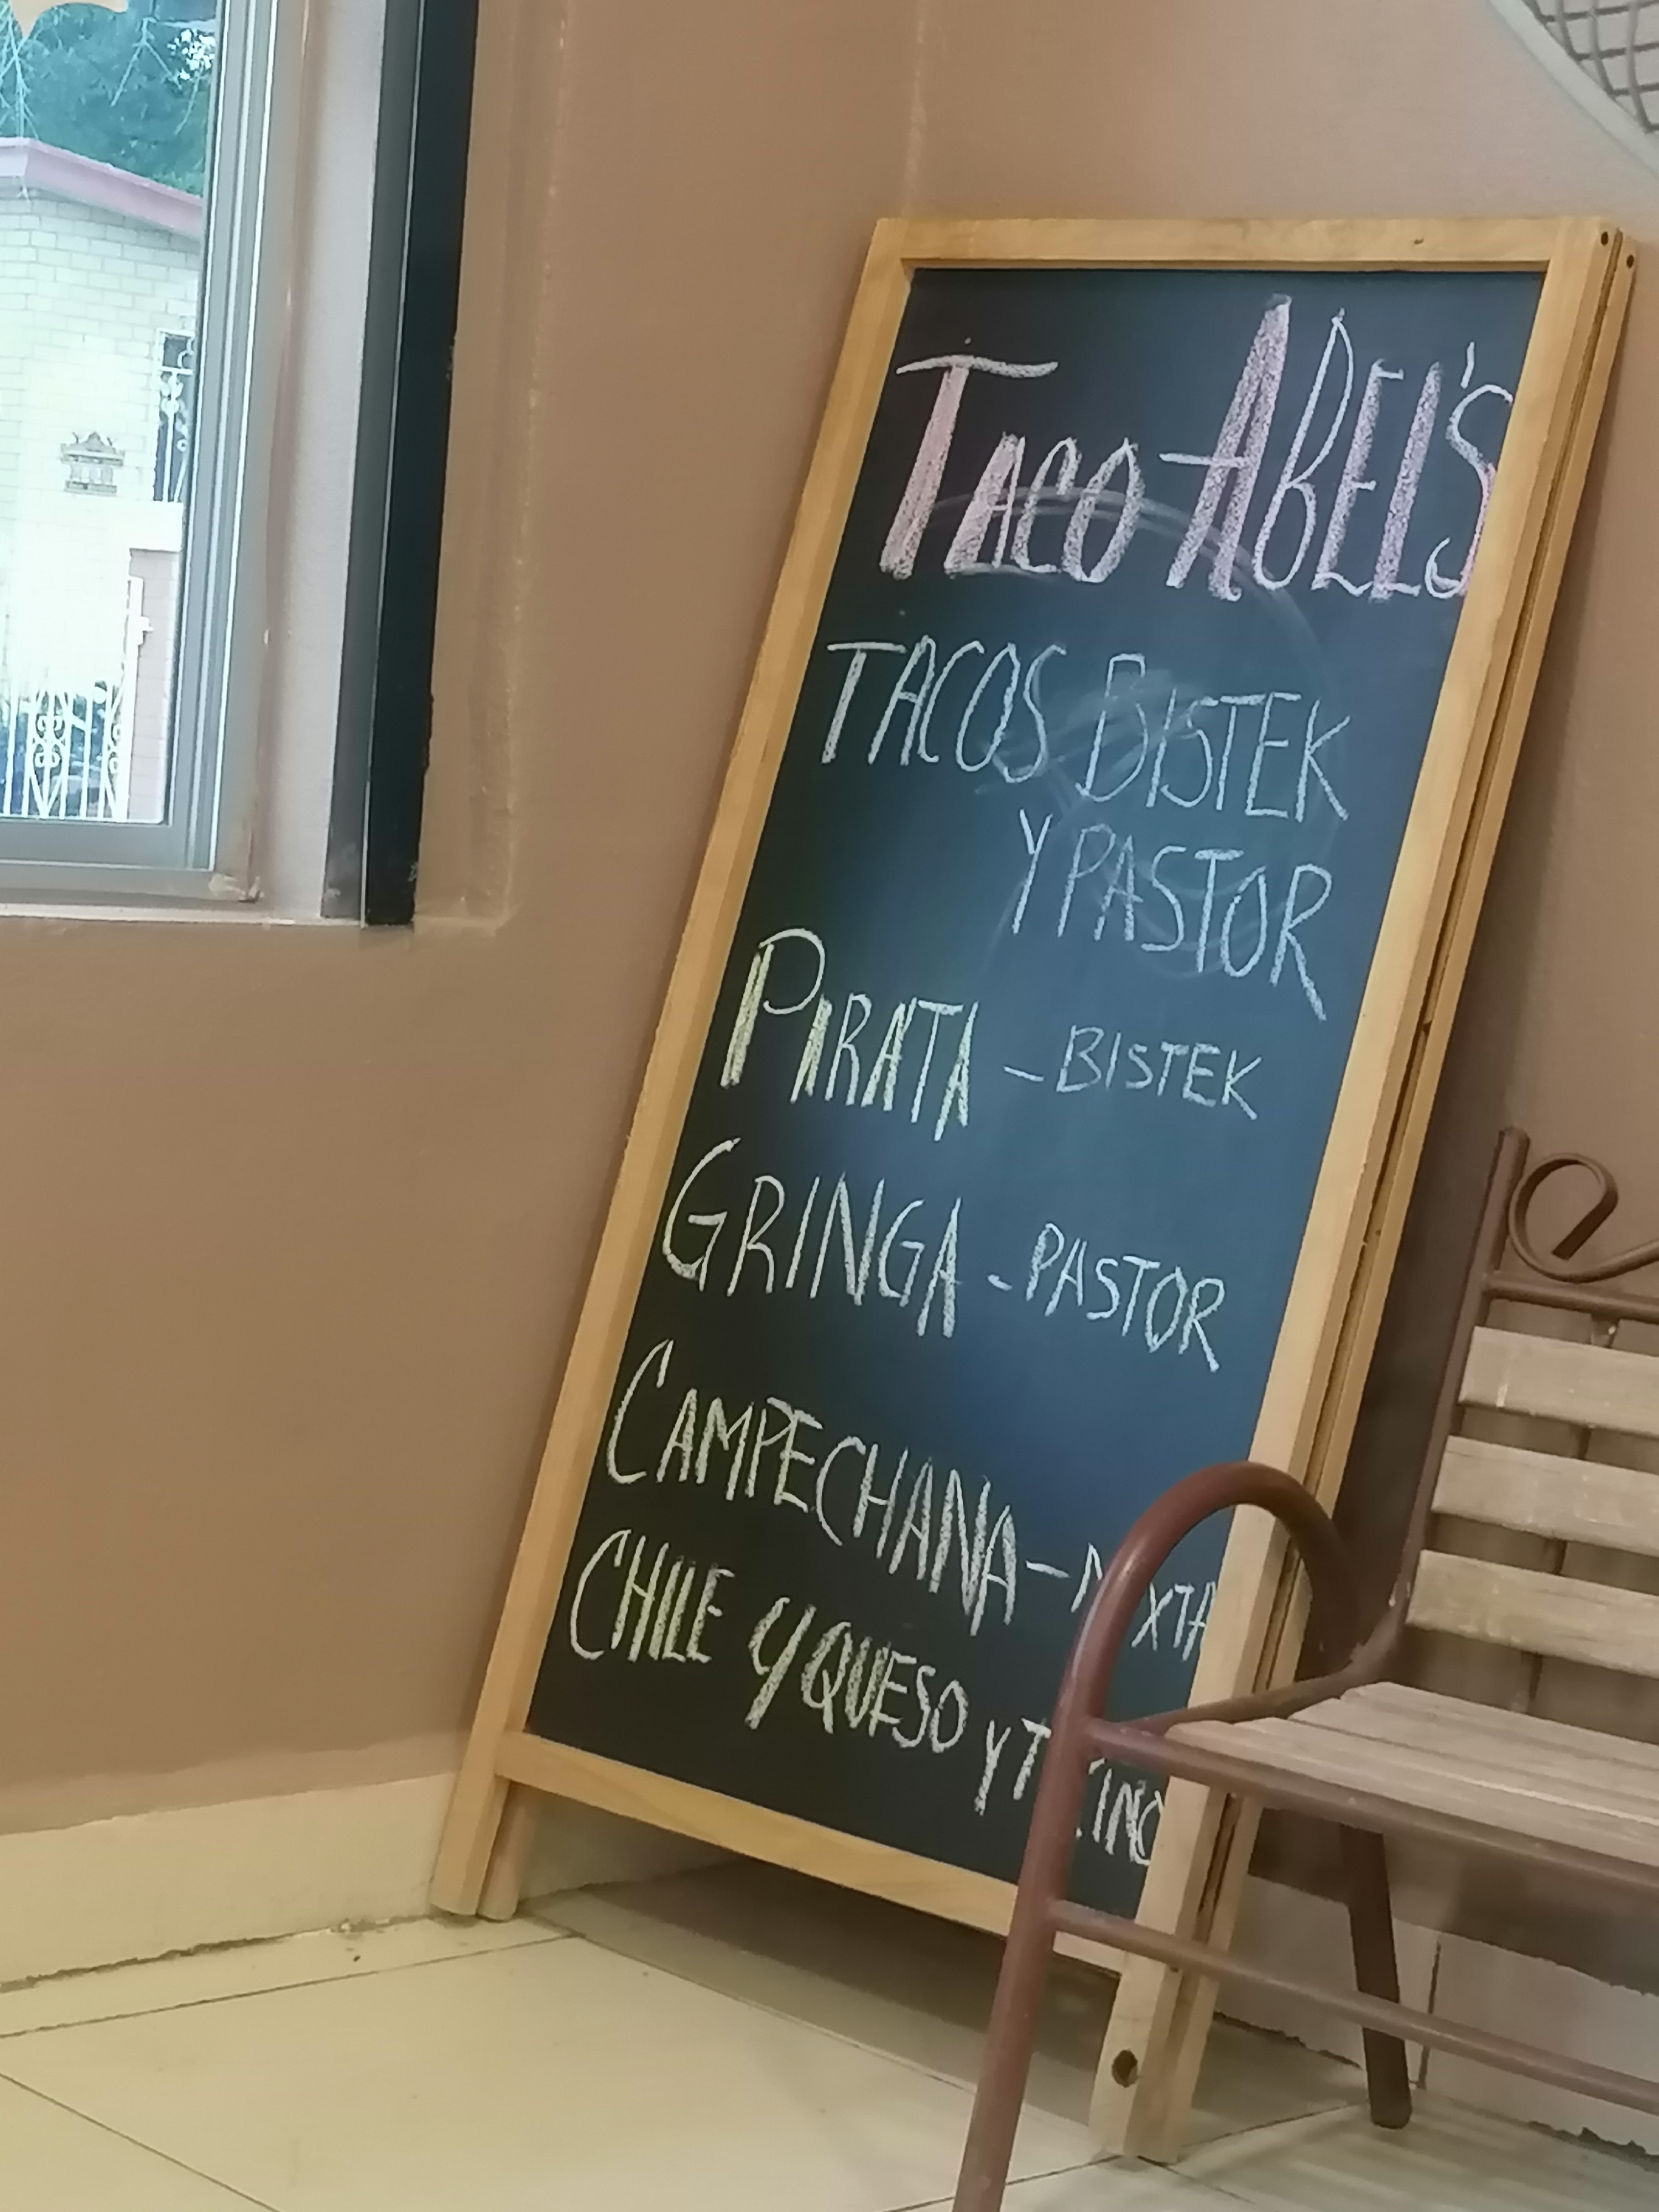 TACO ABEL'S
TACOS BISTEK
Y PASTOR
PIRATA - BISTEK
GRINGA - PASTOR
CAMPECHANA -
CHILE Y QUESO Y